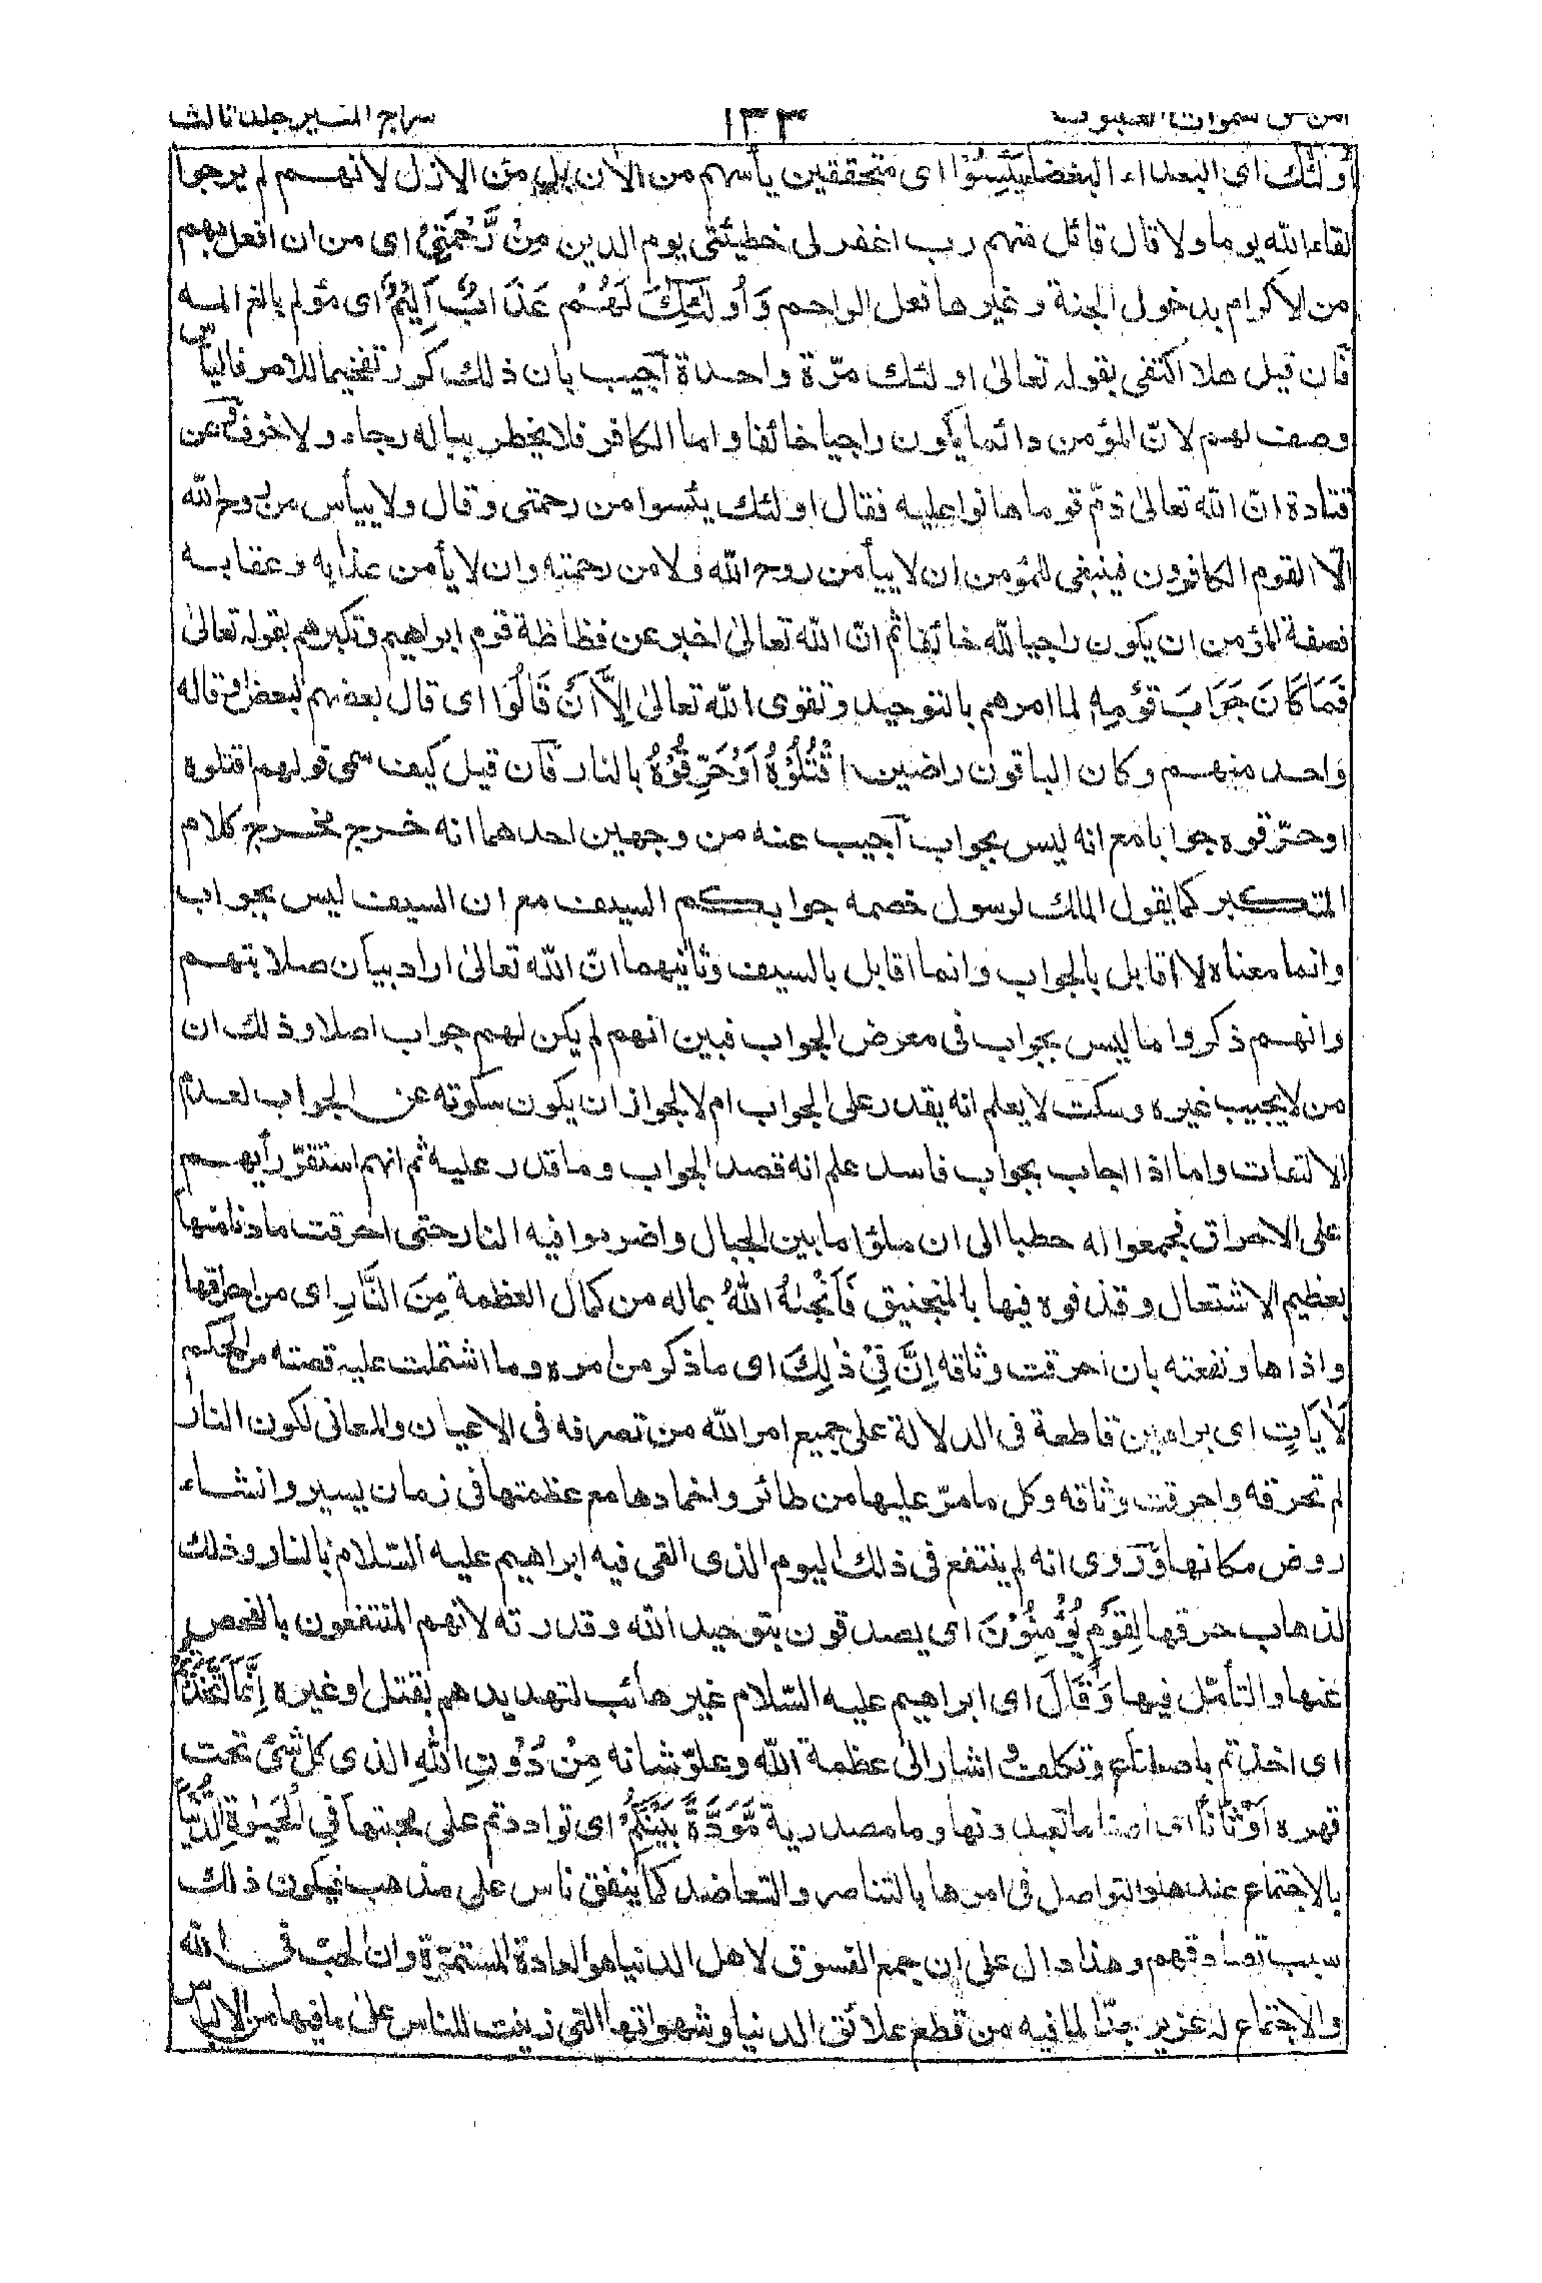 امن خلق سموات العنكبوت ١٣٣ سراج المنير جلد ثالث
أُولَٰئِكَ اى البعداء البغضاء يَئِسُوْا اى متحققين يأسهم من الاٰن بل من الازل لانهم لم يرجوا
لقاء الله يوما ولا قال قائل منهم رب اغفر لى خطيئتى يوم الدين مِنْ رَّحْمَتِيْ اى من ان افعل بهم
من الاكرام بدخول الجنة وغيرها فعل الراحم وَأُولَٰئِكَ لَهُمْ عَذَابٌ اَلِيْمٌ اى مؤلم بالغ المه
فان قيل هلا اكتفى بقوله تعالىٰ اولئك مرّة واحدة آجيب بان ذلك كرر تفخيما للامر فاليأس
وصف لهم لانّ المؤمن دائما يكون راجيا خائفا واما الكافر فلا يخطر بباله رجاء ولا خوف وعن
قتادة انّ الله تعالىٰ ذمّ قوما هانوا عليه فقال اولئك يئسوا من رحمتى وقال ولا ييأس من روح الله
الّا القوم الكافرون فينبغى للمؤمن ان لا ييأ من روح الله ولا من رحمته وان لا يأمن عذابه وعقابه
فصفة المؤمن ان يكون راجيا لله خائفا ثم انّ الله تعالىٰ اخبر عن فظاظة قوم ابراهيم وتكبرهم بقوله تعالىٰ
فَمَا كَانَ جَوَابَ قَوْمِهِ لما امرهم بالتوحيد وتقوى الله تعالىٰ اِلَّا اَنْ قَالُوْا اى قال بعضهم لبعض او قاله
واحد منهم وكان الباقون راضين اقْتُلُوْهُ اَوْ حَرِّقُوْهُ بالنار فآن قيل كيف سمى قولهم اقتلوه
او حرّقوه جوابا مع انه ليس بجواب آجيب عنه من وجهين احدهما انه خرج مخرج كلام
المتكبر كما يقول الملك لرسول خصمه جوابكم السيف مع ان السيف ليس بجواب
وانما معناه لا اقابل بالجواب وانما اقابل بالسيف وثانيهما انّ الله تعالىٰ اراد بيان صلابتهم
وانهم ذكروا ما ليس بجواب فى معرض الجواب فبين انهم لم يكن لهم جواب اصلا وذلك ان
من لا يجيب غيره وسكت لا يعلم انه يقدر على الجواب ام لا لجواز ان يكون سكوته عن الجواب لعدم
الالتفات واما اذا اجاب بجواب فاسد علم انه قصد الجواب وما قدر عليه ثم انهم استقرّ رأيهم
على الاحراق فجمعوا له حطبا الى ان ملؤا ما بين الجبال واضرموا فيه النار حتى احرقت ما دنا منها
بعظيم الاشتعال وقذفوه فيها بالمنجنيق فَاَنْجٰهُ اللهُ بماله من كمال العظمة مِنَ النَّارِ اى من احراقها
واذاها ونفعته بان احرقت وثاقه اِنَّ فِيْ ذٰلِكَ اى ما ذكر من امره وما اشتملت عليه قصته من الحكم
لَاٰيَاتٍ اى براهين قاطعة فى الدلالة على جميع امر الله من تصرفه فى الاعيان والمعانى لكون النار
لم تحرقه واحرقت وثاقه وكل ما مرّ عليها من طائر واخمادها مع عظمتها فى زمان يسير وانشاء
روض مكانها وروى انه لم ينتفع فى ذلك اليوم الذى القى فيه ابراهيم عليه السّلام بالنار وذلك
لذهاب حرقها لِقَوْمٍ يُؤْمِنُوْنَ اى يصدقون بتوحيد الله وقدرته لانهم المنتفعون بالفحص
عنها والتأمّل فيها وَقَالَ اى ابراهيم عليه السّلام غير هائب لتهديدهم بقتل او غيره اِنَّمَا اتَّخَذْتُمْ
اى اخذتم باصطناع وتكلف واشار الىٰ عظمة الله وعلوّ شانه مِنْ دُوْنِ اللهِ الذى كل شئ تحت
قهره اَوْثَانًا اى اصناما تعبدونها وما مصدرية مَّوَدَّةَ بَيْنِكُمْ اى تواددتم على محبتها فِى الْحَيٰوةِ الدُّنْيَا
بالاجتماع عندها والتواصل فى امرها بالتناصر والتعاضد كما يتفق ناس على مذهب فيكون ذلك
سبب تصادقهم وهذا دال على ان جمع الفسوق لاهل الدنيا هو العادة المستمرّة وان الحبّ فى الله
والاجتماع له عزيز جدّا لما فيه من قطع علائق الدنيا وشهواتها التى زينت للناس علىٰ ما فيها من الالباس